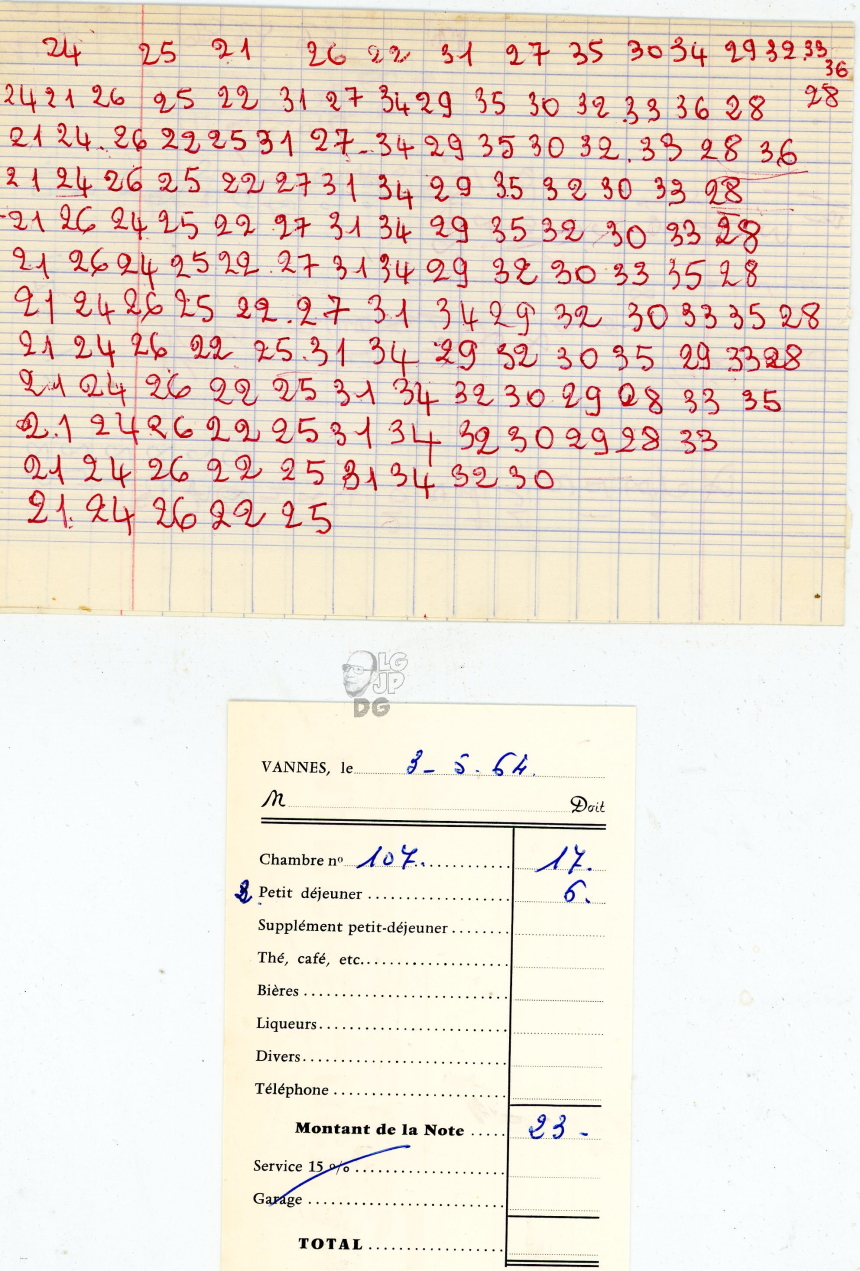 24 25 21 26 22 31 27 35 30 34 29 32.33 36
24 21 26 25 22 31 27 34 29 35 30 32 33 36 28 28
21 24. 26 22 25 31 27- 34 29 35 30 32. 33 28 36
21 24 26 25 22 27 31 34 29 35 32 30 33 28
-21 26 24 25 22 27 31 34 29 35 32 30 33 28
21 26 24 25 22. 27 31 34 29 32 30 33 35 28
21 24 26 25 22.27 31 34 29 32 30 33 35 28
21 24 26 22 25.31 34 29 32 30 35 29 33 28
21 24 26 22 25 31 34 32 30 29 28 33 35
2.1 24 26 22 25 31 34 32 30 29 28 33
21 24 26 22 25 31 34 32 30
21. 24 26 22 25
LG
JP
DG
VANNES, le 3- 5. 64.
M Doit
Chambre nº 107. 17.
2 Petit déjeuner 6.
Supplément petit-déjeuner
Thé, café, etc.
Bières
Liqueurs
Divers
Téléphone
Montant de la Note 23 -
Service 15 %
Garage
TOTAL